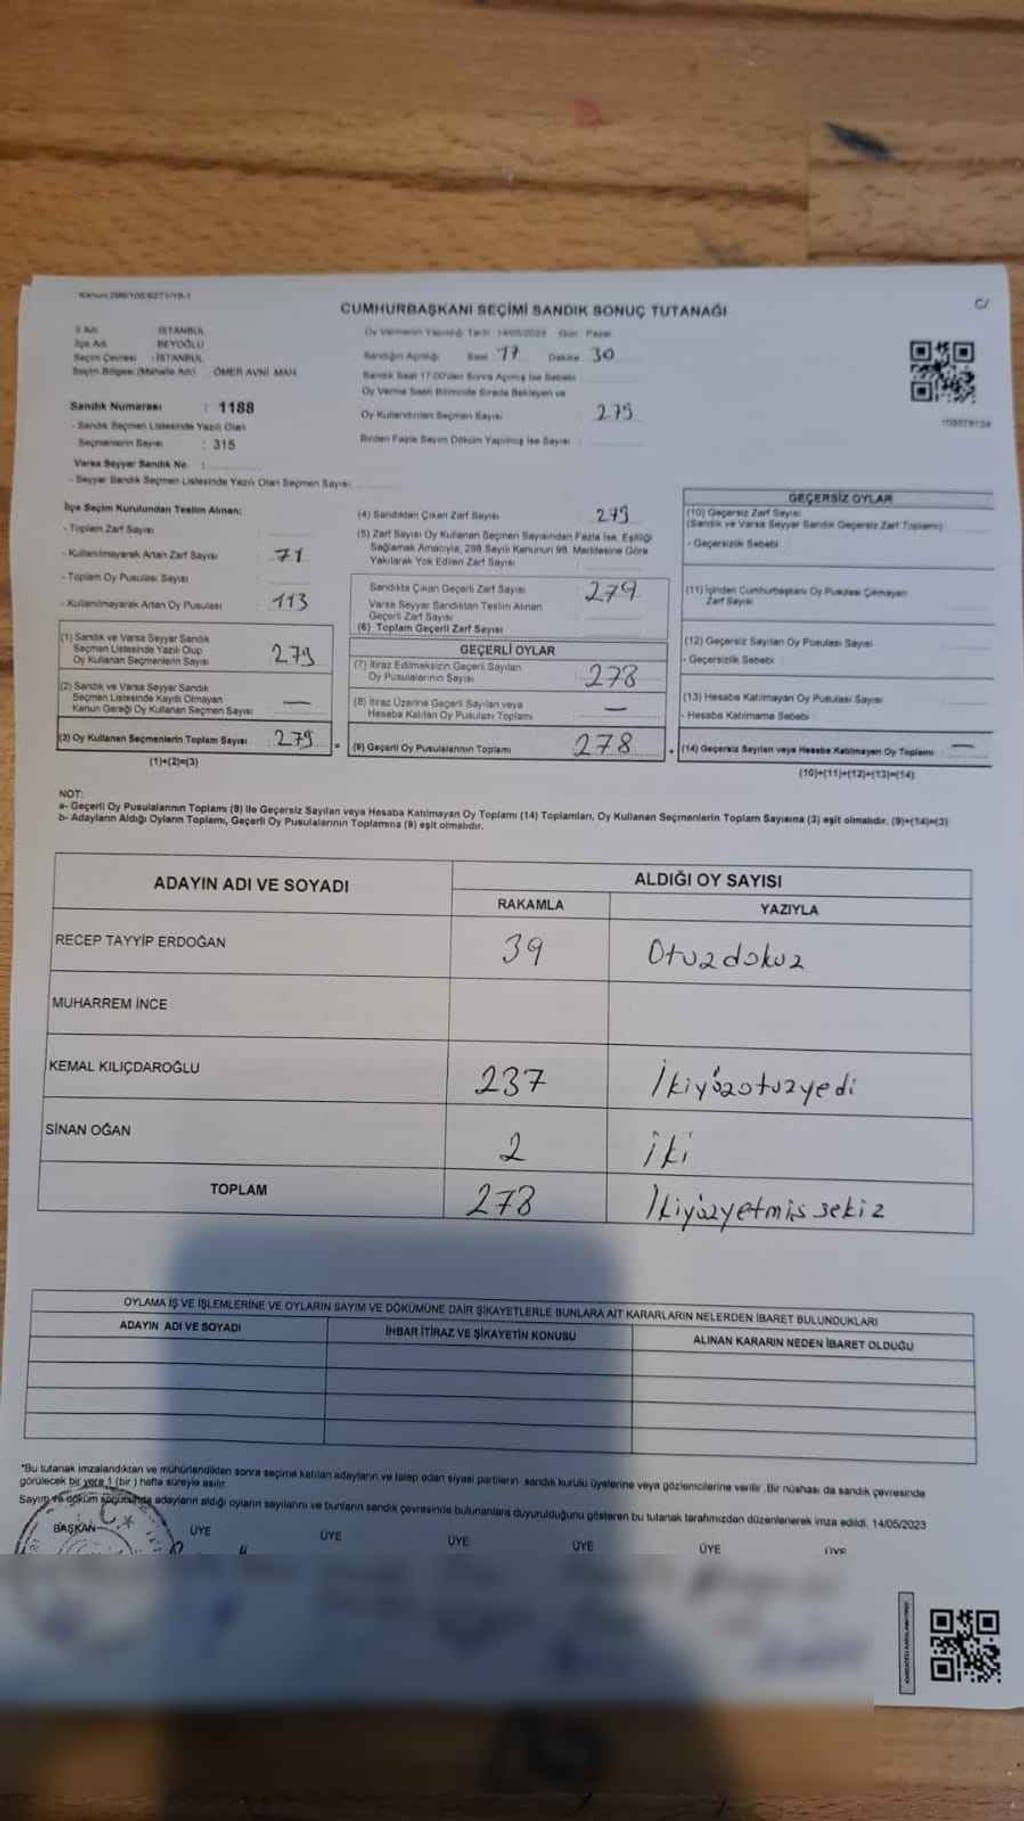 CUMHURBAŞKANI SEÇİMİ SANDIK SONUÇ TUTANAĞI
C/
İl Adı : İSTANBUL
İlçe Adı : BEYOĞLU
Seçim Çevresi : İSTANBUL
Seçim Bölgesi (Mahalle Adı) : ÖMER AVNİ MAH
Sandık Numarası : 1188
- Sandık Seçmen Listesinde Yazılı Olan
Seçmenlerin Sayısı : 315
Varsa Seyyar Sandık No :
- Seyyar Sandık Seçmen Listesinde Yazılı Olan Seçmen Sayısı
Oy Vermenin Yapıldığı Tarih 14/05/2023 Gün Pazar
Sandığın Açıldığı Saat 17 Dakika 30
Sandık Saat 17.00'den Sonra Açılmış İse Sebebi
Oy Verme Saati Bitiminde Sırada Bekleyen ve
Oy Kullandırılan Seçmen Sayısı 279
Birden Fazla Sayım Döküm Yapılmış İse Sayısı
İlçe Seçim Kurulundan Teslim Alınan:
- Toplam Zarf Sayısı
- Kullanılmayarak Artan Zarf Sayısı 71
- Toplam Oy Pusulası Sayısı
- Kullanılmayarak Artan Oy Pusulası 113
(1) Sandık ve Varsa Seyyar Sandık
Seçmen Listesinde Yazılı Olup
Oy Kullanan Seçmenlerin Sayısı 279
(2) Sandık ve Varsa Seyyar Sandık
Seçmen Listesinde Kayıtlı Olmayan
Kanun Gereği Oy Kullanan Seçmen Sayısı —
(3) Oy Kullanan Seçmenlerin Toplam Sayısı 279
(1)+(2)=(3)
(4) Sandıktan Çıkan Zarf Sayısı 279
(5) Zarf Sayısı Oy Kullanan Seçmen Sayısından Fazla İse, Eşitliği
Sağlamak Amacıyla, 298 Sayılı Kanunun 98. Maddesine Göre
Yakılarak Yok Edilen Zarf Sayısı
Sandıkta Çıkan Geçerli Zarf Sayısı 279
Varsa Seyyar Sandıktan Teslim Alınan
Geçerli Zarf Sayısı
(6) Toplam Geçerli Zarf Sayısı
GEÇERLİ OYLAR
(7) İtiraz Edilmeksizin Geçerli Sayılan
Oy Pusulalarının Sayısı 278
(8) İtiraz Üzerine Geçerli Sayılan veya
Hesaba Katılan Oy Pusulası Toplamı —
(9) Geçerli Oy Pusulalarının Toplamı 278
GEÇERSİZ OYLAR
(10) Geçersiz Zarf Sayısı
(Sandık ve Varsa Seyyar Sandık Geçersiz Zarf Toplamı)
- Geçersizlik Sebebi
(11) İçinden Cumhurbaşkanı Oy Pusulası Çıkmayan
Zarf Sayısı
(12) Geçersiz Sayılan Oy Pusulası Sayısı
- Geçersizlik Sebebi
(13) Hesaba Katılmayan Oy Pusulası Sayısı
- Hesaba Katılmama Sebebi
(14) Geçersiz Sayılan veya Hesaba Katılmayan Oy Toplamı —
(10)+(11)+(12)+(13)=(14)
NOT:
a- Geçerli Oy Pusulalarının Toplamı (9) ile Geçersiz Sayılan veya Hesaba Katılmayan Oy Toplamı (14) Toplamları, Oy Kullanan Seçmenlerin Toplam Sayısına (3) eşit olmalıdır. (9)+(14)=(3)
b- Adayların Aldığı Oyların Toplamı, Geçerli Oy Pusulalarının Toplamına (9) eşit olmalıdır.
ADAYIN ADI VE SOYADI
ALDIĞI OY SAYISI
RAKAMLA YAZIYLA
RECEP TAYYİP ERDOĞAN 39 Otuzdokuz
MUHARREM İNCE
KEMAL KILIÇDAROĞLU 237 İkiyüzotuzyedi
SİNAN OĞAN 2 iki
TOPLAM 278 İkiyüzyetmiş sekiz
OYLAMA İŞ VE İŞLEMLERİNE VE OYLARIN SAYIM VE DÖKÜMÜNE DAİR ŞİKAYETLERLE BUNLARA AİT KARARLARIN NELERDEN İBARET BULUNDUKLARI
ADAYIN ADI VE SOYADI İHBAR İTİRAZ VE ŞİKAYETİN KONUSU ALINAN KARARIN NEDEN İBARET OLDUĞU
"Bu tutanak imzalandıktan ve mühürlendikten sonra seçime katılan adayların ve talep eden siyasi partilerin sandık kurulu üyelerine veya gözlemcilerine verilir. Bir nüshası da sandık çevresinde
görülecek bir yere 1 (bir) hafta süreyle asılır.
Sayım ve döküm sonucunda adayların aldığı oyların sayılarını ve bunların sandık çevresinde bulunanlara duyurulduğunu gösteren bu tutanak tarafımızdan düzenlenerek imza edildi. 14/05/2023
BAŞKAN ÜYE ÜYE ÜYE ÜYE ÜYE ÜYE